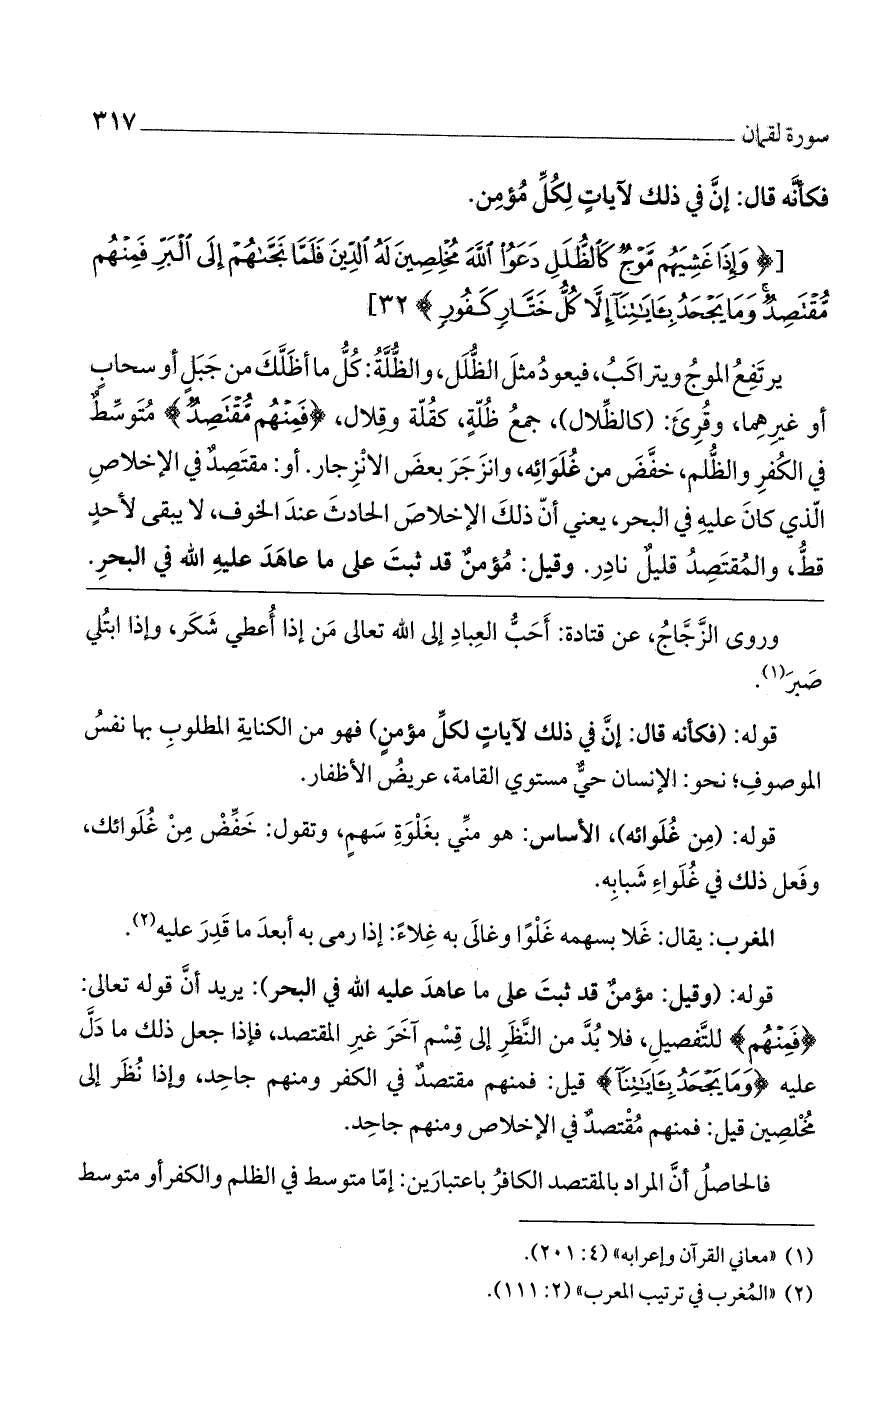 سورة لقمان ٣١٧
فكأنَّه قال: إنَّ في ذلك لآياتٍ لِكُلِّ مُؤمِن.
[﴿ وَإِذَا غَشِيَهُم مَّوْجٌ كَالظُّلَلِ دَعَوُا اللَّهَ مُخْلِصِينَ لَهُ الدِّينَ فَلَمَّا نَجَّىٰهُمْ إِلَى الْبَرِّ فَمِنْهُم
مُّقْتَصِدٌ ۚ وَمَا يَجْحَدُ بِـَٔايَـٰتِنَآ إِلَّا كُلُّ خَتَّارٍ كَفُورٍ ﴾ ٣٢]
يرتَفِعُ الموجُ ويتراكَبُ، فيعودُ مثلَ الظُّلَل، والظُّلَّةُ: كُلُّ ما أظَلَّكَ من جَبَلٍ أو سحابٍ
أو غيرِهِما، وقُرِئَ: (كالظِّلال)، جمعُ ظُلّةٍ، كقُلّة وقِلال، ﴿فَمِنْهُم مُّقْتَصِدٌ﴾ مُتَوسِّطٌ
في الكُفرِ والظُّلم، خفَّضَ من غُلَوَائِه، وانزَجَرَ بعضَ الانْزِجار. أو: مقتَصِدٌ في الإخلاصِ
الّذي كانَ عليهِ في البحر، يعني أنّ ذلكَ الإخلاصَ الحادثَ عندَ الخوف، لا يبقى لأحدٍ
قطُّ، والمُقتَصِدُ قليلٌ نادِر. وقيل: مُؤمنٌ قد ثبتَ على ما عاهَدَ عليهِ الله في البحرِ.
وروى الزَّجَّاجُ، عن قتادة: أَحَبُّ العِبادِ إلى الله تعالى مَن إذا أُعطي شَكَر، وإذا ابتُلي
صَبرَ(١).
قوله: (فكأنه قال: إنَّ في ذلك لآياتٍ لكلِّ مؤمنٍ) فهو من الكنايةِ المطلوبِ بها نفسُ
الموصوفِ؛ نحو: الإنسان حيٌّ مستوي القامة، عريضُ الأظفار.
قوله: (مِن غُلَوائه)، الأساس: هو منِّي بغَلْوَةِ سَهمٍ، وتقول: خَفِّضْ مِنْ غُلَوائك،
وفَعل ذلك في غُلَواءِ شَبابِه.
المغرب: يقال: غَلا بسهمه غَلْوًا وغالَى به غِلاءً: إذا رمى به أبعدَ ما قَدِرَ عليه(٢).
قوله: (وقيل: مؤمنٌ قد ثبتَ على ما عاهدَ عليه الله في البحر): يريد أنَّ قوله تعالى:
﴿فَمِنْهُم﴾ للتَّفصيلِ، فلا بُدَّ من النَّظَرِ إلى قِسْم آخَرَ غيرِ المقتصد، فإذا جعل ذلك ما دَلَّ
عليه ﴿وَمَا يَجْحَدُ بِـَٔايَـٰتِنَآ﴾ قيل: فمنهم مقتصدٌ في الكفر ومنهم جاحِد، وإذا نُظَر إلى
مُخْلِصِين قيل: فمنهم مُقْتصدٌ في الإخلاص ومنهم جاحِد.
فالحاصلُ أنَّ المراد بالمقتصد الكافرُ باعتبارَين: إمّا متوسط في الظلم والكفر أو متوسط
(١) «معاني القرآن وإعرابه» (٤: ٢٠١).
(٢) «المُغرب في ترتيب المعرب» (٢: ١١١).